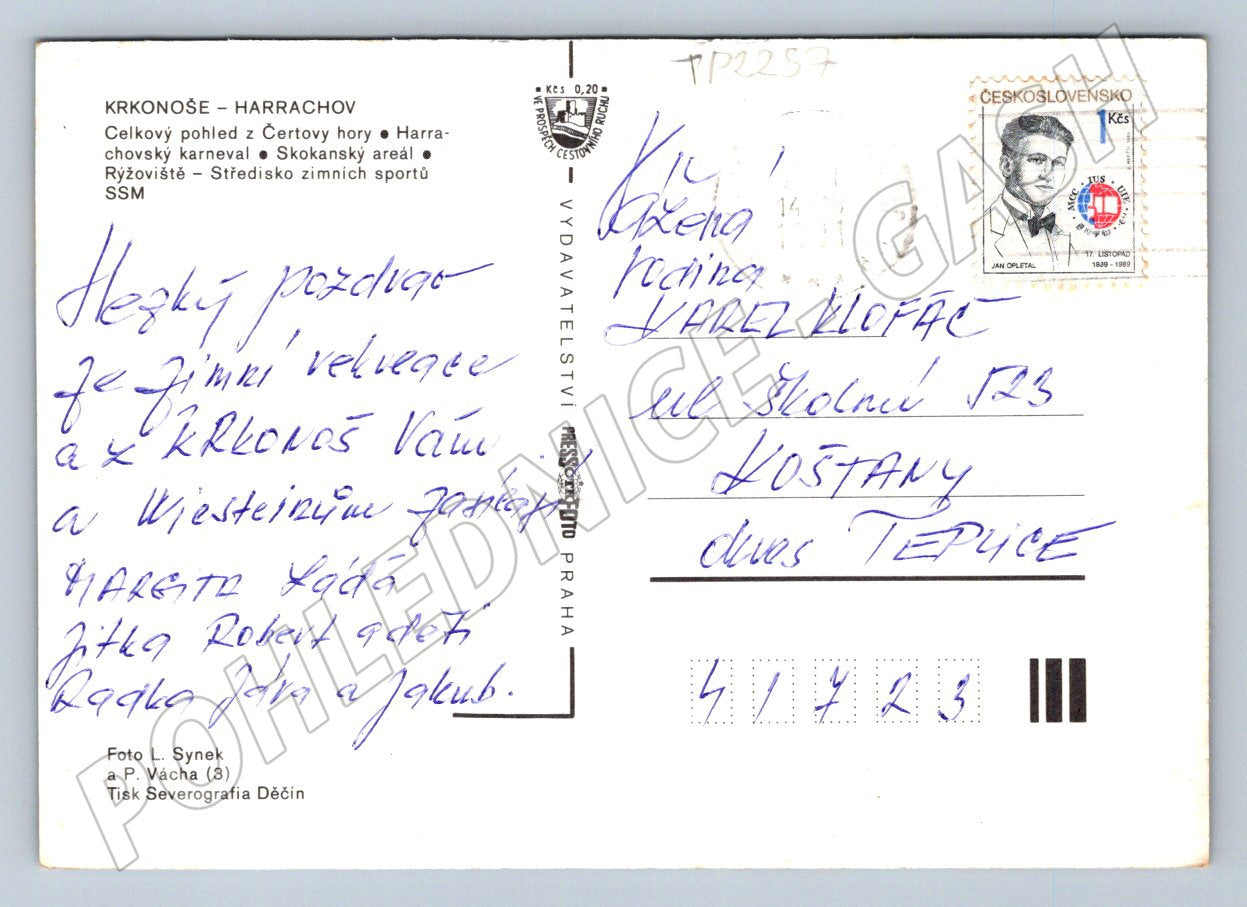 TP2257
KRKONOŠE – HARRACHOV
Celkový pohled z Čertovy hory ● Harra-
chovský karneval ● Skokanský areál ●
Rýžoviště – Středisko zimních sportů
SSM
Hezký pozdrav
ze zimní rekreace
a z KRKONOŠ Vám
a
MARGITA Láďa
Jitka Robert a děti
Radka Jára a Jakub.
Foto L. Synek
a P. Vácha (3)
Tisk Severografia Děčín
Kčs 0,20
VE PROSPĚCH CESTOVNÍHO RUCHU
VYDAVATELSTVÍ PRESSFOTO PRAHA
ČESKOSLOVENSKO
1 Kčs
MCC · IUS · UIE
JAN OPLETAL
17. LISTOPAD
1939 - 1989
Vážená
rodina
KAREL KLOFÁČ
ul. Školní 523
KOŠTANY
okres TEPLICE
41723
POHLEDNICE - GASH